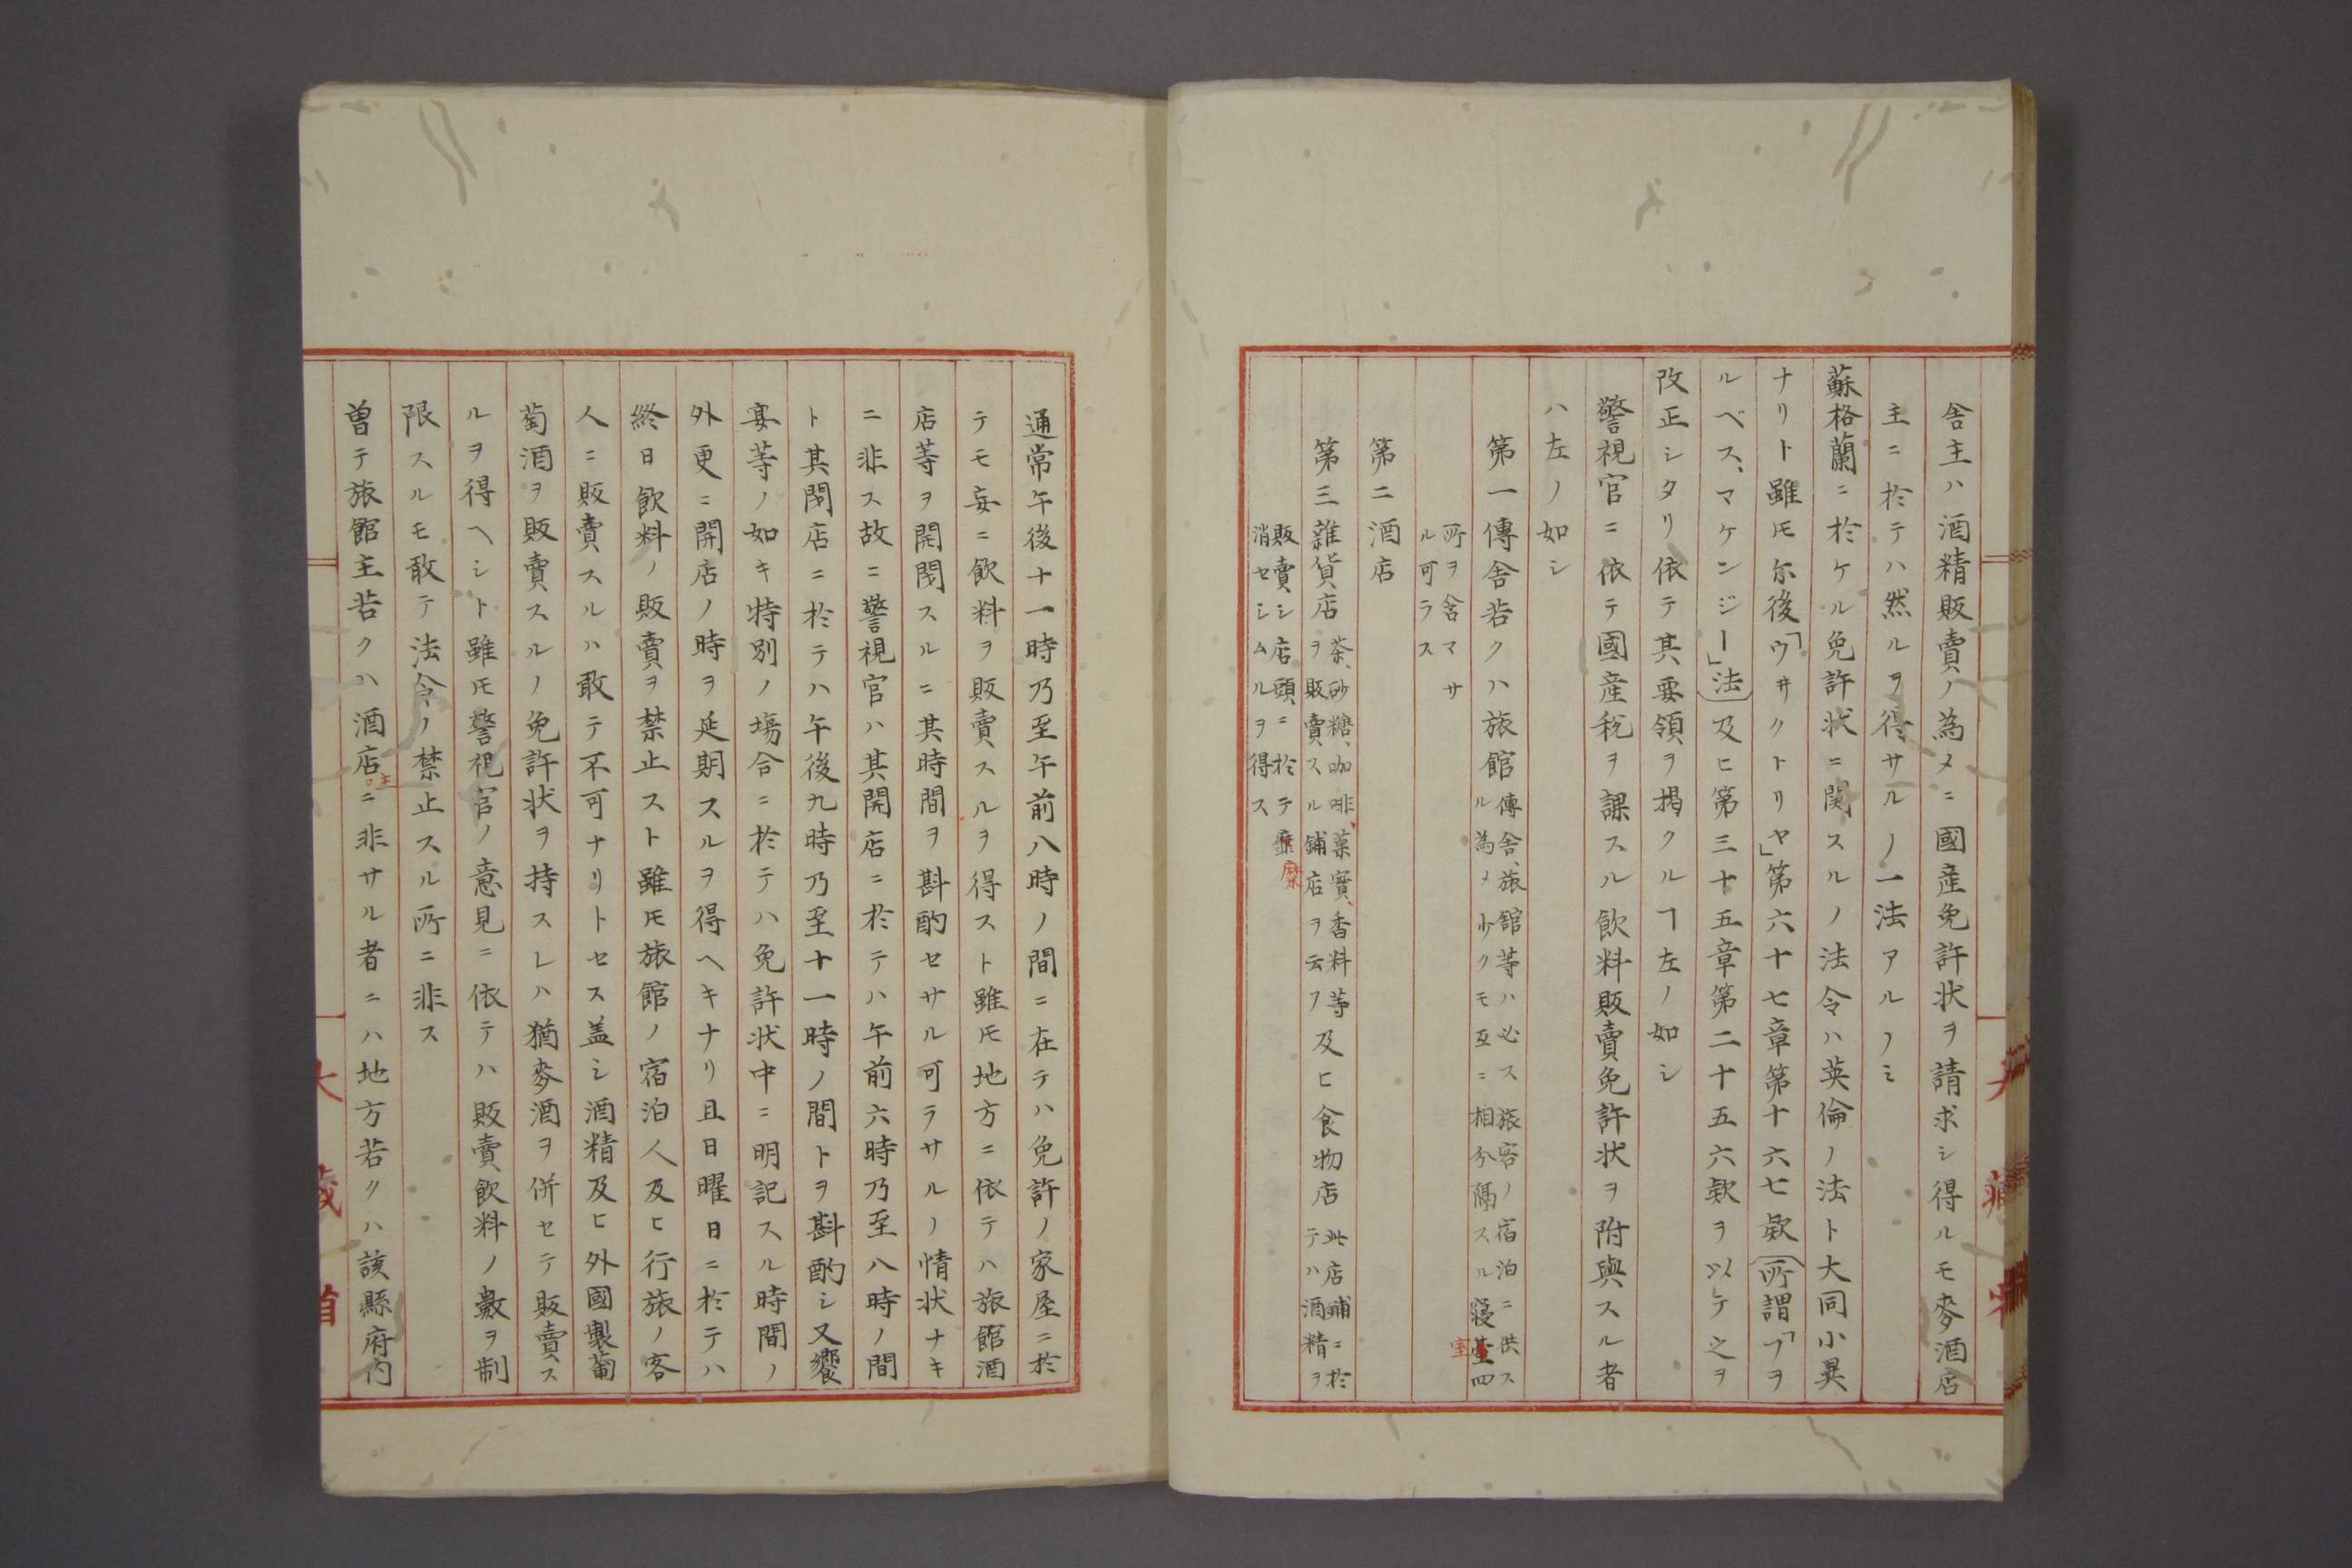 舎主ハ酒精販賣ノ為メニ國産免許状ヲ請求シ得ルモ麥酒店
主ニ於テハ然ルヲ得サルノ一法アルノミ
蘇格蘭ニ於ケル免許状ニ関スルノ法令ハ英倫ノ法ト大同小異
ナリト雖モ尓後「ウ井クトリヤ」第六十七章第十六七欵(所謂「フヲ
ルベス、マケンジー」法)及ヒ第三十五章第二十五六欵ヲ以テ之ヲ
改正シタリ依テ其要領ヲ掲クルヿ左ノ如シ
警視官ニ依テ國産税ヲ課スル飲料販賣免許状ヲ附與スル者
ハ左ノ如シ
第一傳舎若クハ旅館
傳舎、旅舘等ハ必ス旅客ノ宿泊ニ供ス
ル為メ少クモ互ニ相分隔スル寝臺四
室
所ヲ含マサ
ル可ラス
第二酒店
第三雜貨店
茶、砂糖、咖啡、菓實、香料等
ヲ販賣スル鋪店ヲ云フ
及ヒ食物店
此店鋪ニ於
テハ酒精ヲ
販賣シ店頭ニ於テ靡
糜
消セシムルヲ得ス
通常午後十一時乃至午前八時ノ間ニ在テハ免許ノ家屋ニ於
テモ妄ニ飲料ヲ販賣スルヲ得スト雖モ地方ニ依テハ旅館酒
店等ヲ開閉スルニ其時間ヲ斟酌セサル可ラサルノ情状ナキ
ニ非ス故ニ警視官ハ其開店ニ於テハ午前六時乃至八時ノ間
ト其閉店ニ於テハ午後九時乃至十一時ノ間トヲ斟酌シ又饗
宴等ノ如キ特別ノ塲合ニ於テハ免許状中ニ明記スル時間ノ
外更ニ開店ノ時ヲ延期スルヲ得ヘキナリ且日曜日ニ於テハ
終日飲料ノ販賣ヲ禁止スト雖モ旅館ノ宿泊人及ヒ行旅ノ客
人ニ販賣スルハ敢テ不可ナリトセス盖シ酒精及ヒ外國製葡
萄酒ヲ販賣スルノ免許状ヲ持スレハ猶麥酒ヲ併セテ販賣ス
ルヲ得ヘシト雖モ警視官ノ意見ニ依テハ販賣飲料ノ數ヲ制
限スルモ敢テ法令ノ禁止スル所ニ非ス
曽テ旅館主若クハ酒店主ニ非サル者ニハ地方若クハ該縣府内